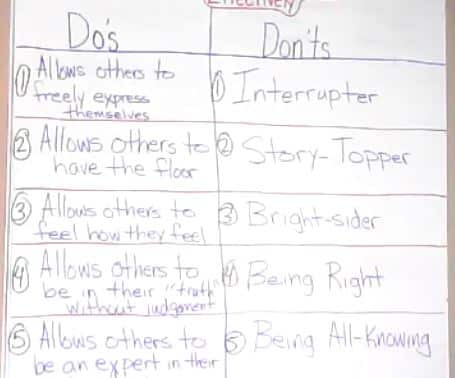 EFFECTIVELY
Do's
Don'ts
① Allows others to
freely express
themselves
① Interrupter
② Allows others to
have the floor
② Story-Topper
③ Allows others to
feel how they feel
③ Bright-sider
④ Allows others to
be in their "truth"
without judgement
④ Being Right
⑤ Allows others to
be an expert in their
⑤ Being All-Knowing